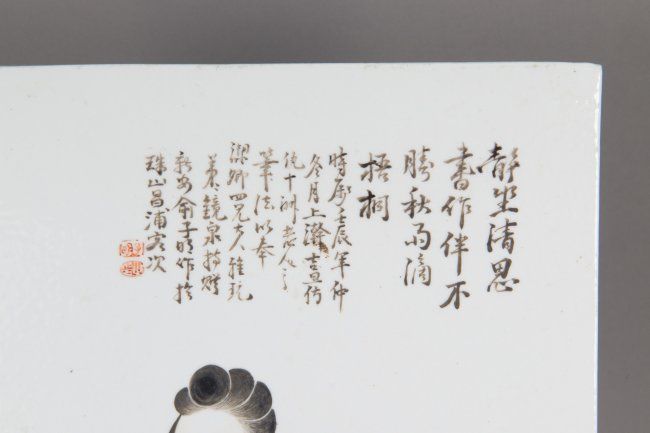 靜坐清思
書作伴不
勝秋雨滴
梧桐
時屬壬辰年仲
冬月上澣吉宣仿
十洲老人
筆法以奉
卿四兄大人雅玩
弟鏡泉持贈
新安俞子明作於
珠山昌浦客次